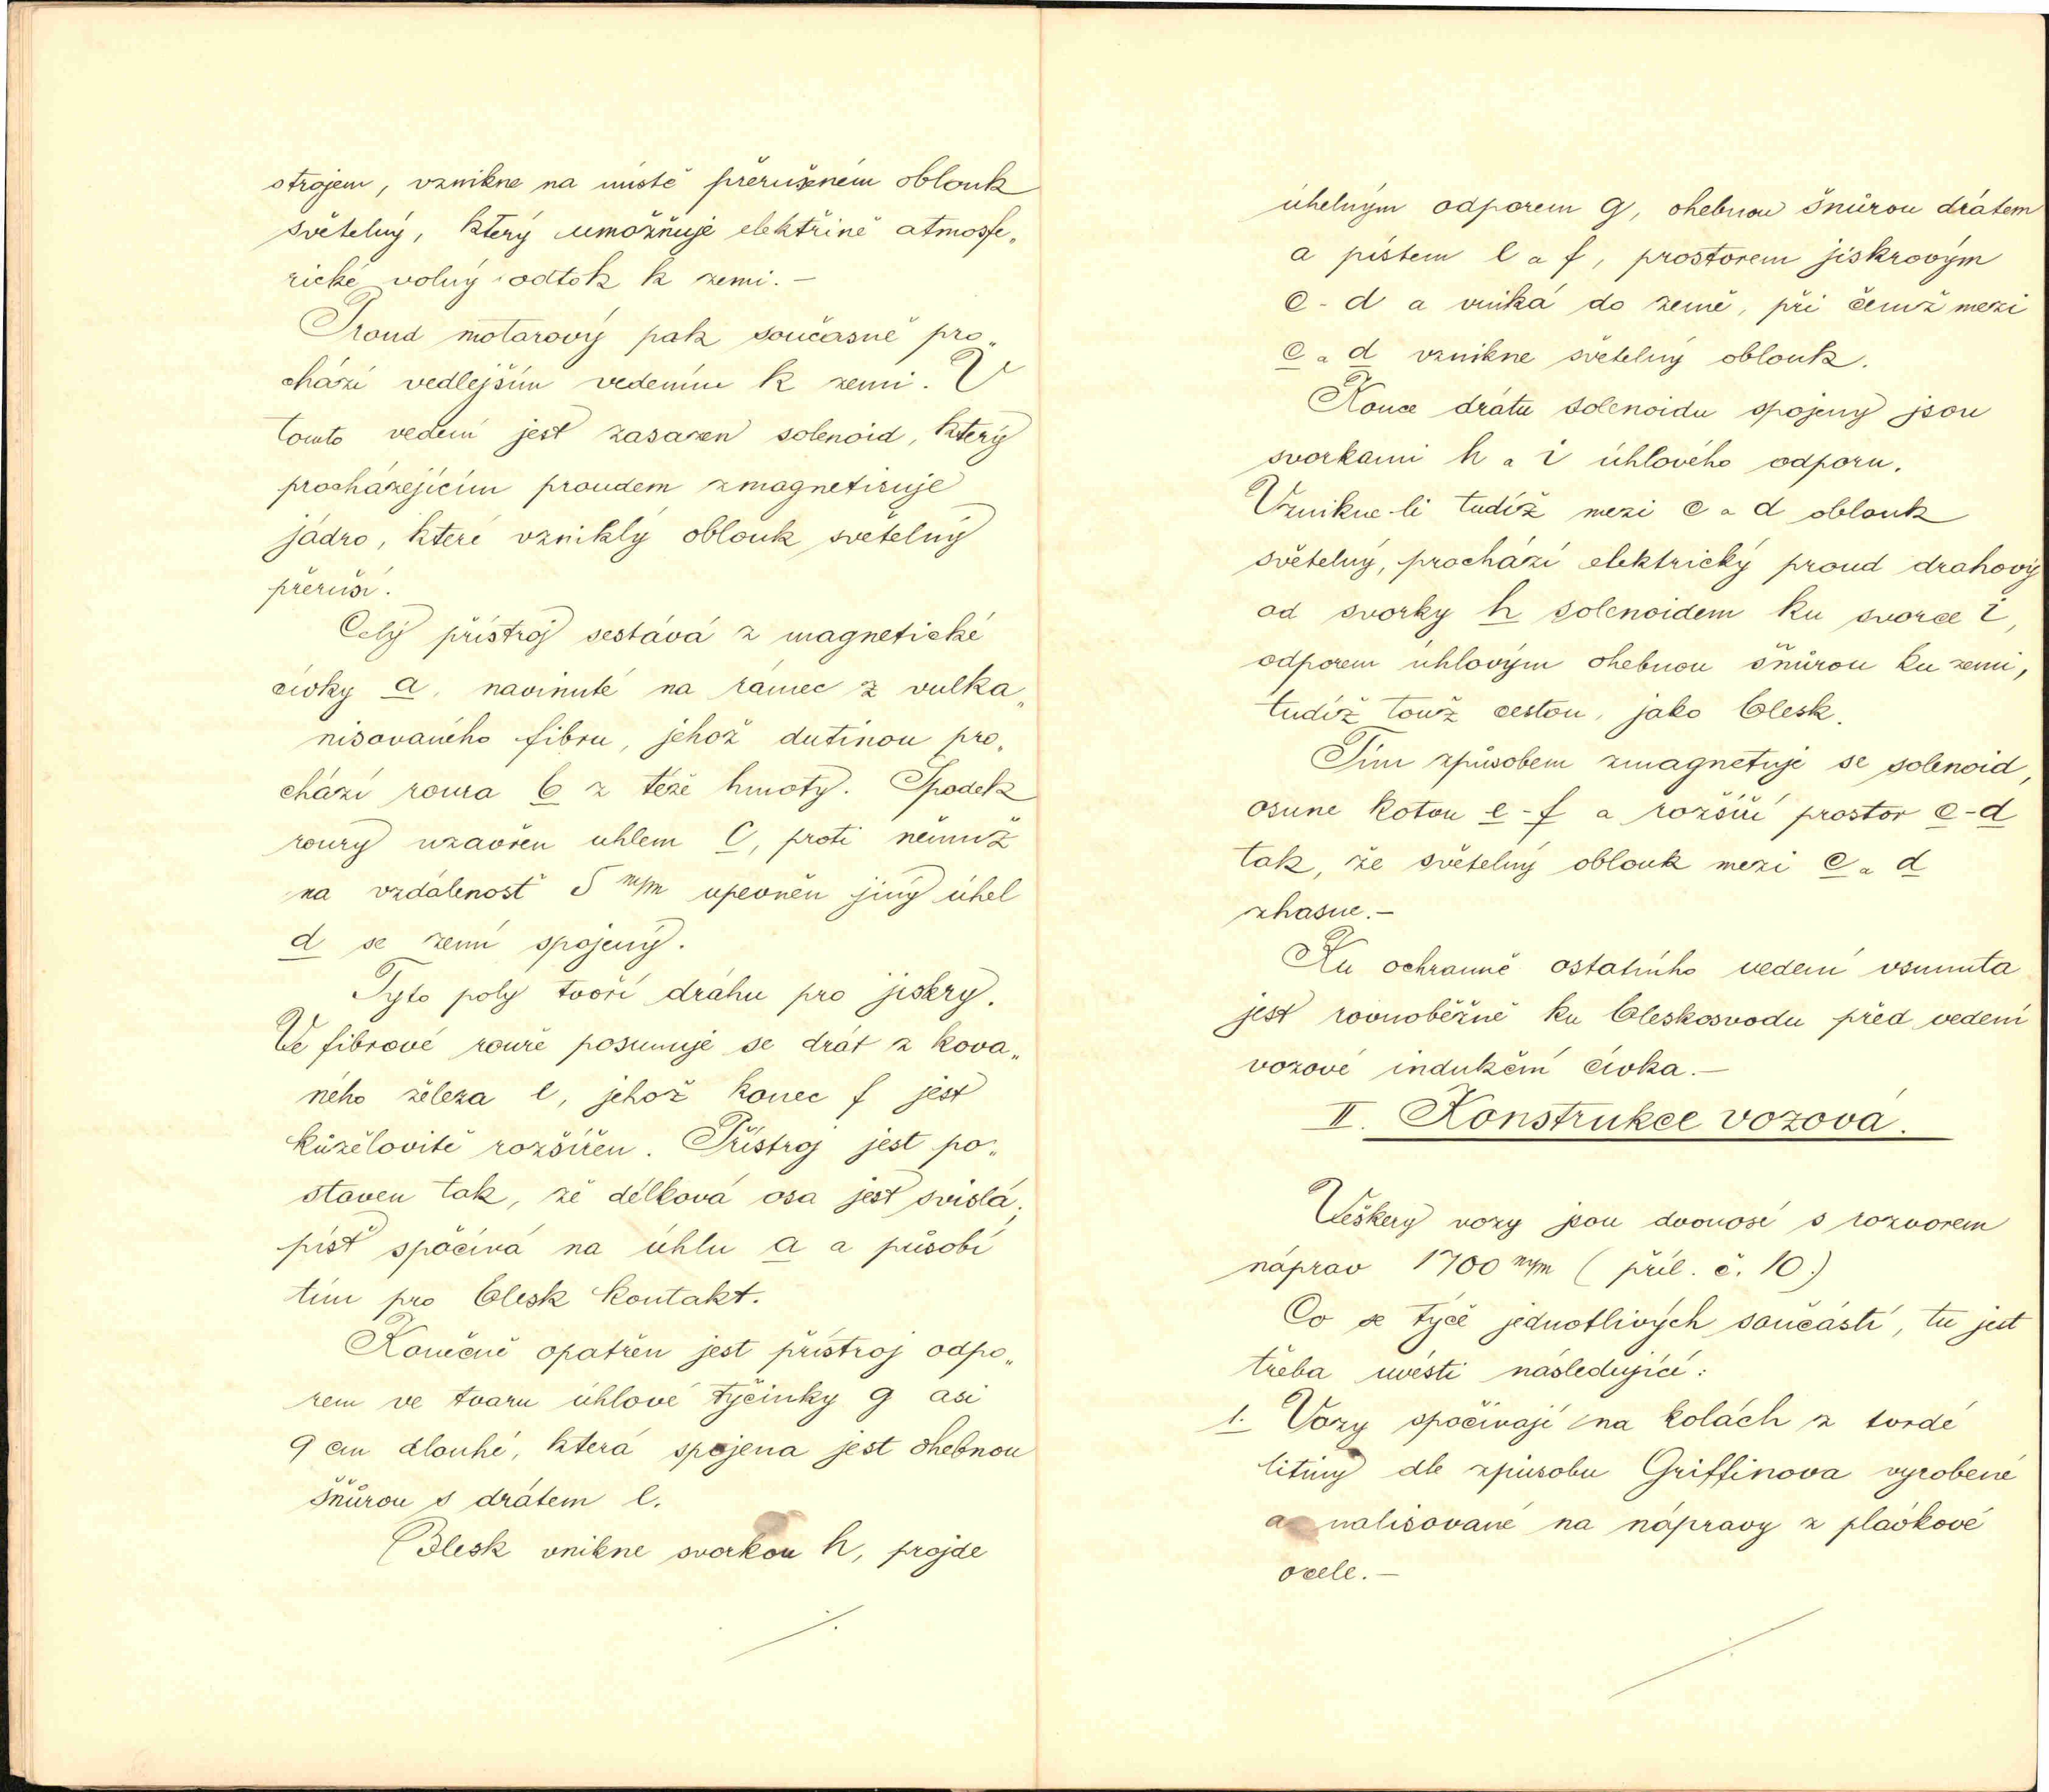 strojem, vznikne na místě přerušeném oblouk
světelný, který umožňuje elektřině atmosfe„
rické volný odtok k zemi. —
Proud motarový pak současně pro„
chází vedlejším vedením k zemi. V
tomto vedení jest zasazen solenoid, který
procházejícím proudem zmagnetisuje
jádro, které vzniklý oblouk světelný
přeruší.
Celý přístroj sestává z magnetické
cívky a, navinuté na rámec z vulka„
nisovaného fibru, jehož dutinou pro„
chází roura b z téže hmoty. Spodek
roury uzavřen uhlem c, proti němuž
na vzdálenosť 5 m/m upevněn jiný úhel
d se zemí spojený.
Tyto poly tvoří dráhu pro jiskry.
Ve fibrové rouře posunuje se drát z kova„
ného železa e, jehož konec f jest
kůželovitě rozšířen. Přístroj jest po„
staven tak, že délková osa jest svislá;
písť spočívá na úhlu a a působí
tím pro blesk kontakt.
Konečně opatřen jest přístroj odpo„
rem ve tvaru úhlové tyčinky g asi
9 cm dlouhé, která spojena jest ohebnou
šňůrou s drátem e.
Blesk vnikne svorkou h, projde
./.
úhelným odporem g, ohebnou šnůrou drátem
a pístem e a f, prostorem jiskrovým
c - d a vniká do země, při čemž mezi
c a d vznikne světelný oblouk.
Konce drátu solenoidu spojeny jsou
svorkami h a i úhlového odporu.
Vznikne-li tudíž mezi c a d oblouk
světelný, prochází elektrický proud drahový
od svorky h solenoidem ku svorce i,
odporem úhlovým ohebnou šňůrou ku zemi,
tudíž touž cestou, jako blesk.
Tím způsobem zmagnetuje se solenoid,
osune kotou e - f a rozšíří prostor c - d
tak, že světelný oblouk mezi c a d
zhasne. —
Ku ochranně ostatního vedení vsunuta
jest rovnoběžně ku bleskosvodu před vedení
vozové indukční cívka. —
II. Konstrukce vozová.
Veškery vozy jsou dvouosé s rozvorem
náprav 1700 m/m ( příl. č. 10.)
Co se týče jednotlivých součástí, tu jest
třeba uvésti následující:
1. Vozy spočívají na kolách z tvrdé
litiny dle způsobu Griffinova vyrobené
a nalisované na nápravy z plavkové
ocele. —
./.